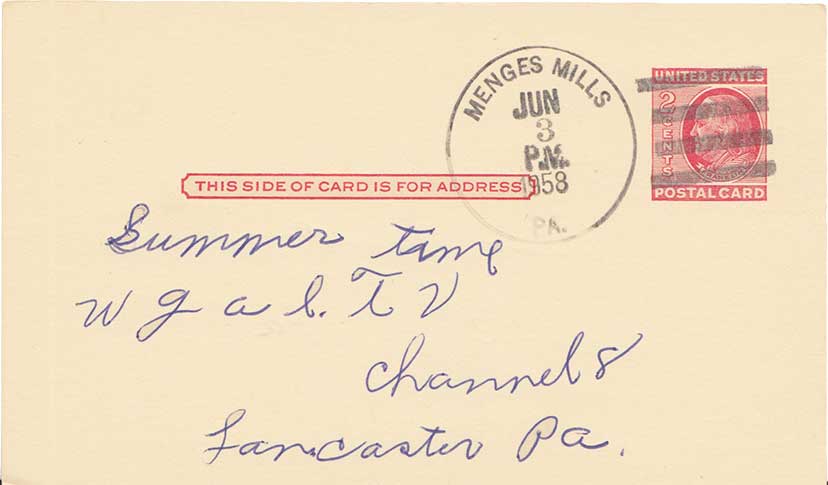 MENGES MILLS
JUN
3
P.M.
1958
PA.
UNITED STATES
2 CENTS
POSTAL CARD
THIS SIDE OF CARD IS FOR ADDRESS
Summer time
W g a l. T V
Channel 8
Lancaster Pa.